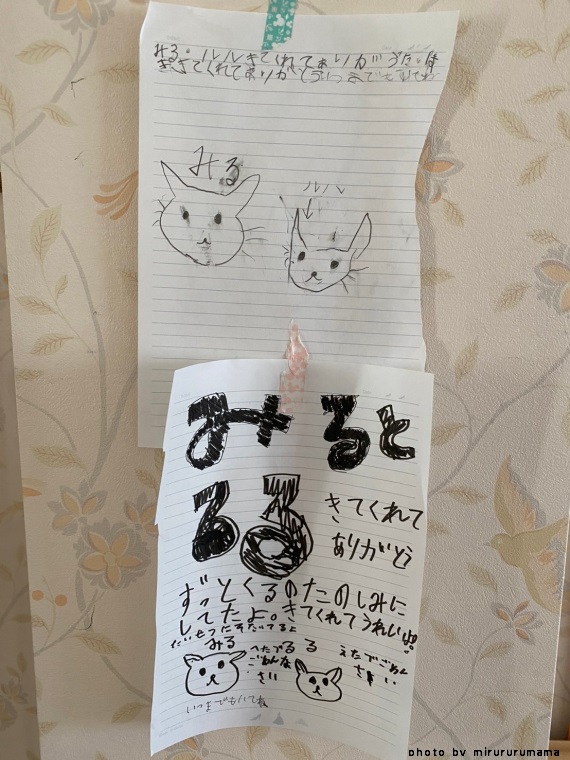 みる。ルルきてくれてありがとうだい
きてくれてありがとういつまでも
みる
ルル
みると
るる
きてくれて
ありがとう
ずっとくるのたのしみに
してたよ。きてくれてうれしいよ。
だいせつにそだてるよ
みる
へたでごめんなさい
るる
えたでごめんさい
いつまでもいてね
photo by mirurururumama